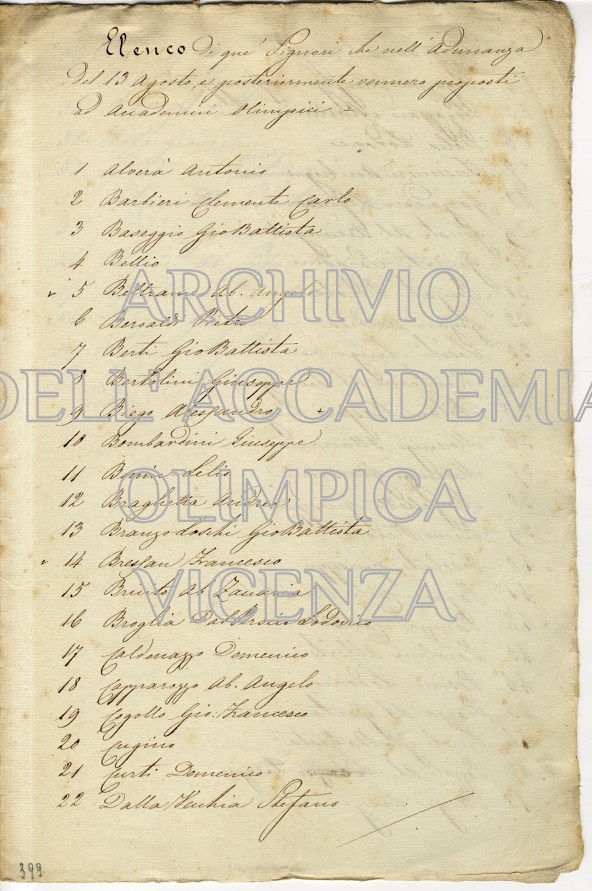 Elenco di que' Signori che nell'Adunanza
del 13 Agosto, e posteriormente vennero proposti
ad Accademici Olimpici
1 Alverà Antonio
2 Barbieri Clemente Carlo
3 Baseggio Gio Battista
4 Bellio
5 Beltrame Ab. Angelo
6 Beroaldi Pietro
7 Berti Gio Battista
8 Bertolini Giuseppe
9 Biego Alessandro +
10 Bombardini Giuseppe
11 Lelio
12 Braghetta Andrea
13 Branzo Loschi Gio Battista
14 Bressan Francesco
15 Ab. Zaccaria
16 Broglia Dal Persico Lodovico
17 Caldonazzo Domenico
18 Capparozzo Ab. Angelo
19 Cogollo Gio: Francesco
20 Cugino
21 Curti Domenico
22 Dalla Vecchia Stefano
399
ARCHIVIO
DELL'ACCADEMIA
OLIMPICA
VICENZA